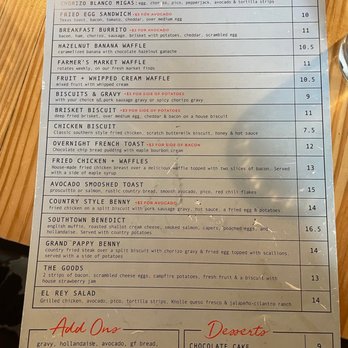 CHORIZO BLANCO MIGAS: egg, chorizo, pico, pepperjack, avocado & tortilla strips
FRIED EGG SANDWICH +$3 FOR AVOCADO 10
Texas toast, bacon, tomato, cheddar, over medium egg
BREAKFAST BURRITO +$3 FOR AVOCADO 11
bacon, ham, chorizo, sausage, brisket with potatoes, cheddar, scrambled egg
HAZELNUT BANANA WAFFLE 10.5
caramelized banana with chocolate hazelnut ganache
FARMER'S MARKET WAFFLE 11
rotates weekly, on our fresh market finds
FRUIT + WHIPPED CREAM WAFFLE 10.5
mixed fruit with whipped cream
BISCUITS & GRAVY +$3 FOR SIDE OF POTATOES 9
with your choice of pork sausage gravy or spicy chorizo gravy
BRISKET BISCUIT +$3 FOR SIDE OF POTATOES 11
deep fried brisket, over medium egg, cheddar & bacon on a house biscuit
CHICKEN BISCUIT 7.5
Classic southern style fried chicken, scratch buttermilk biscuit, honey & hot sauce
OVERNIGHT FRENCH TOAST +$3 FOR SIDE OF BACON 12
Chocolate chip bread pudding with maple bourbon cream
FRIED CHICKEN + WAFFLES 13
House-made fried chicken breast over a delicious malted waffle topped with two slices of bacon. Served
with a side of maple syrup
AVOCADO SMOOSHED TOAST 15
prosciutto or salmon, rustic country bread, smooshed avocado, pico, red chili flakes
COUNTRY STYLE BENNY +$3 FOR AVOCADO 14
fried chicken on a split biscuit with pork sausage gravy, hot sauce, a fried egg & potatoes
SOUTHTOWN BENEDICT 16.5
english muffin, roasted shallot cream cheese, smoked salmon, capers, poached eggs, and
hollandaise. Served with country potatoes
GRAND PAPPY BENNY 14
country fried steak over a split biscuit with chorizo gravy & fried egg topped with scallions
served with a side of potatoes
THE GOODS 13
2 strips of bacon, scrambled cheese eggs, campfire potatoes, fresh fruit & a biscuit with
house strawberry jam
EL REY SALAD 14
Grilled chicken, avocado, pico, tortilla strips, Kholle queso fresco & jalapeño-cilantro ranch
Add Ons
gravy, hollandaise, avocado, gf bread,
Desserts
CHOCOLATE CAKE 9